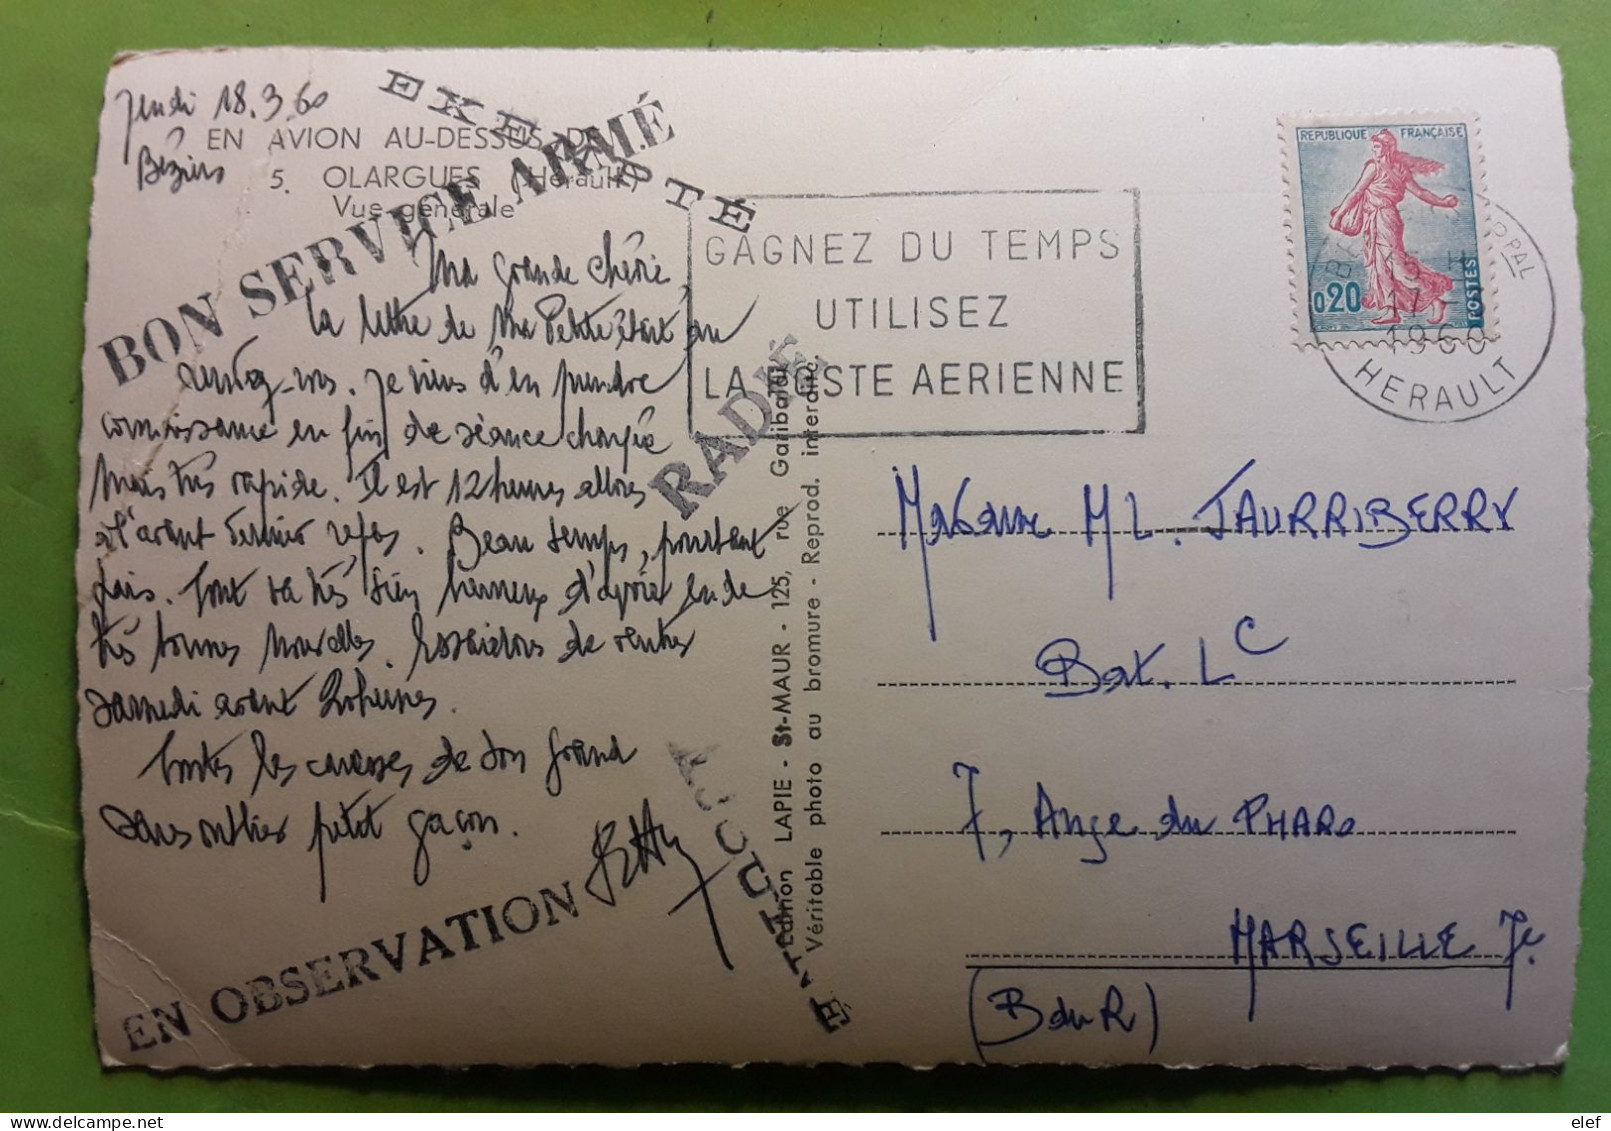 Jeudi 18.3.60
Béziers
EN AVION AU-DESSUS DE
5. OLARGUES (Hérault)
Vue générale
EXEMPTÉ
BON SERVICE ARMÉ
Ma grande Chérie,
la lettre de Ma Petite était au
rendez-vous. Je viens d'en prendre
connaissance en fin de séance chargée
mais très rapide. Il est 12 heures allons
à l'avant dernier repas. Beau temps, pourtant
frais. Tout va très bien heureux d'avoir eu de
très bonnes nouvelles. Essaierons de rentrer
samedi avant 20 heures.
Toutes les caresses de ton grand
sans oublier petit gaçon.
EN OBSERVATION
RADIÉ
AJOURNÉ
Edition LAPIE - St-MAUR - 125, rue Garibaldi
Véritable photo au bromure - Reprod. interdite
GAGNEZ DU TEMPS
UTILISEZ
LA POSTE AERIENNE
REPUBLIQUE FRANÇAISE
0,20
POSTES
PAL
15 H
17-
1960
HERAULT
Madame ML. JAURRIBERRY
Bat. LC
7, Ange du PHARO
MARSEILLE 7e
(B du R)
elef